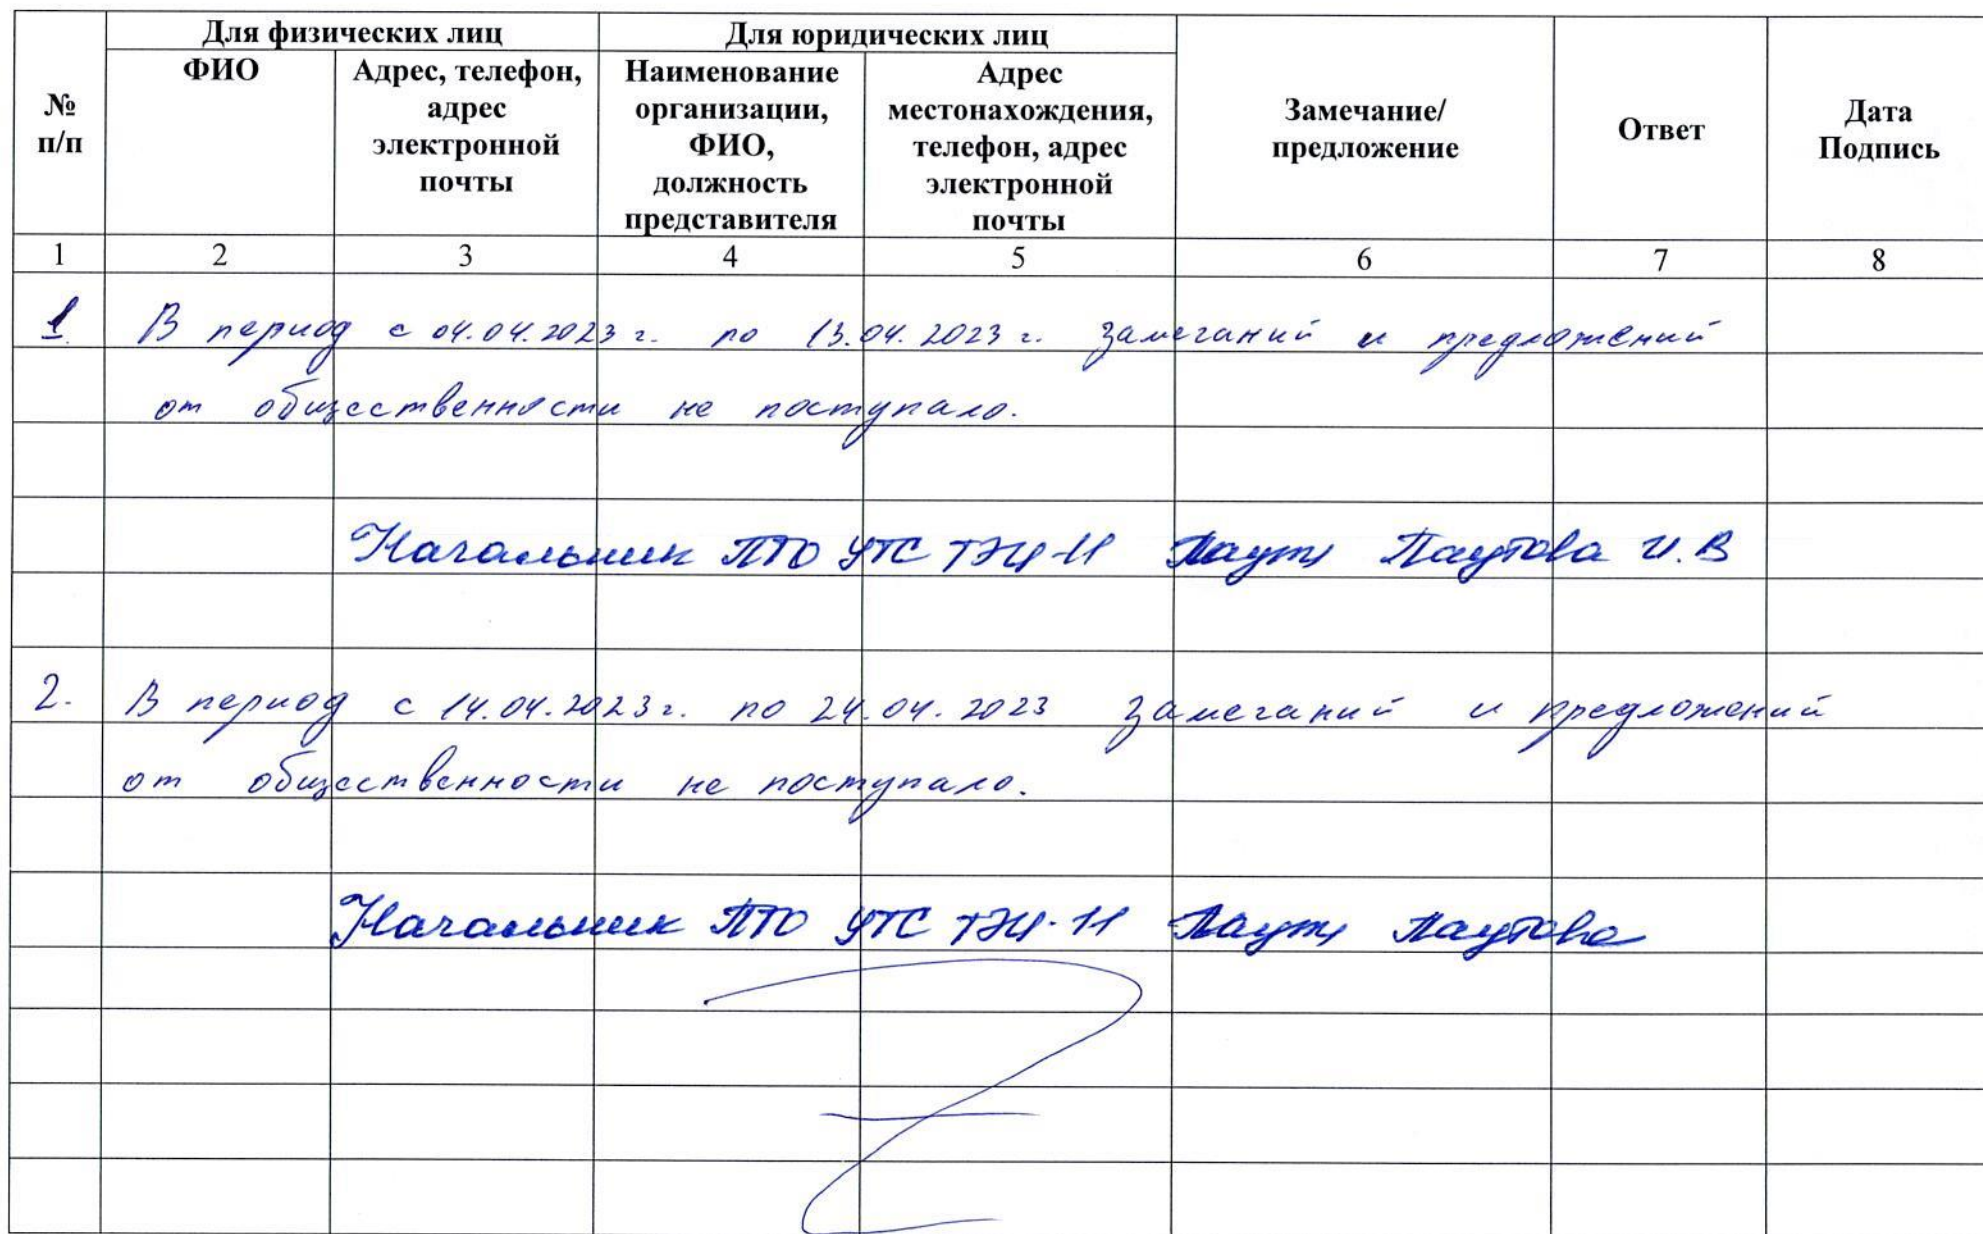 Для физических лиц Для юридических лиц
№ п/п ФИО Адрес, телефон, адрес электронной почты Наименование организации, ФИО, должность представителя Адрес местонахождения, телефон, адрес электронной почты Замечание/ предложение Ответ Дата Подпись
1 2 3 4 5 6 7 8
1. В период с 04.04.2023 г. по 13.04.2023 г. замечаний и предложений
от общественности не поступало.
Начальник ПТО УТС ТЭЦ-11 Паутова И.В
2. В период с 14.04.2023г. по 24.04.2023 замечаний и предложений
от общественности не поступало.
Начальник ПТО УТС ТЭЦ-11 Паутова